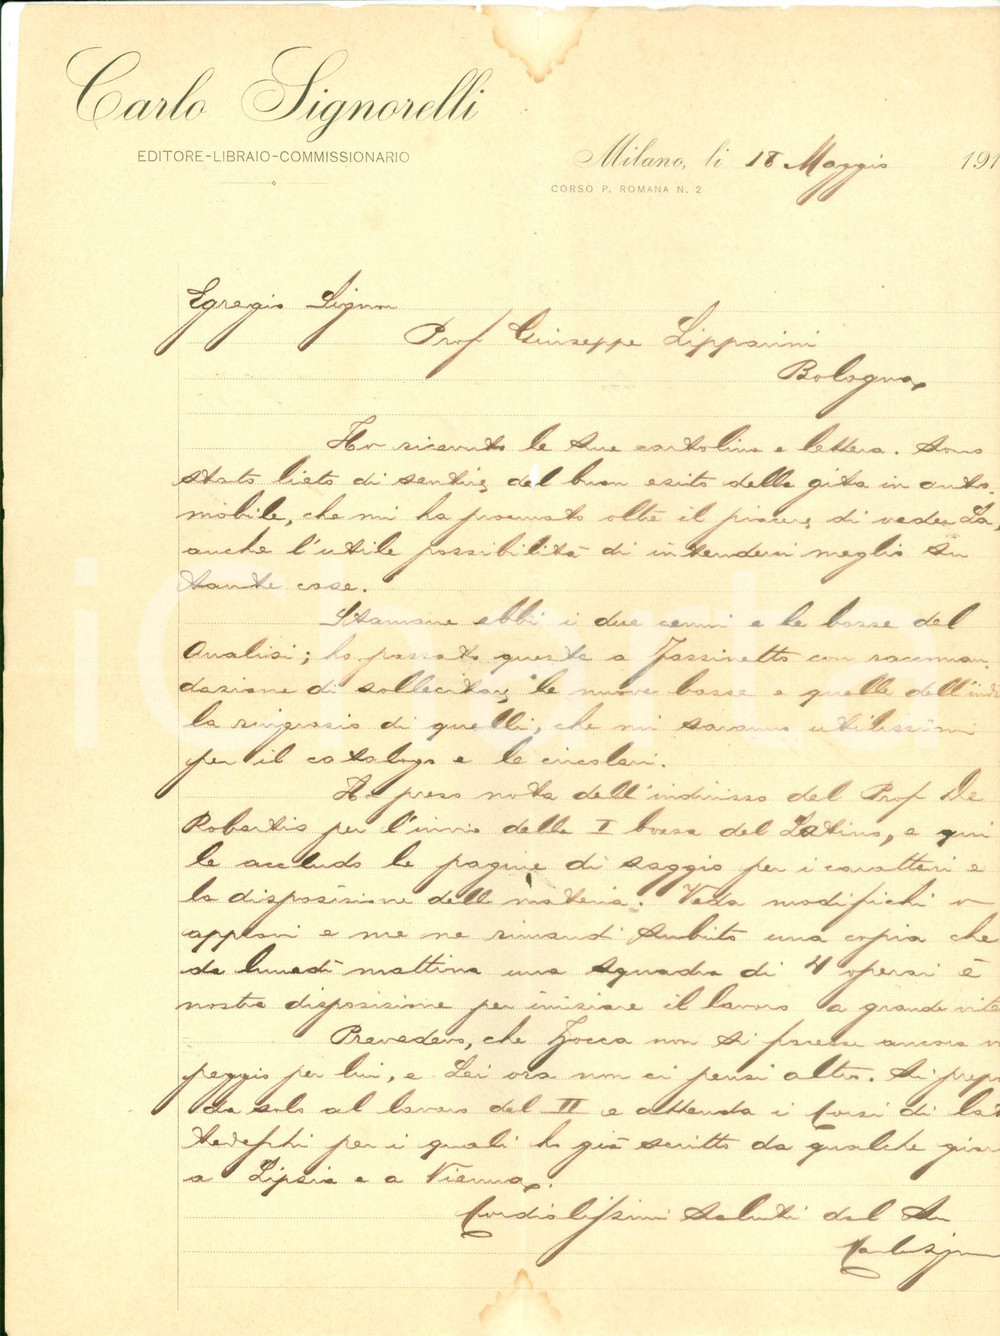 Carlo Signorelli
EDITORE-LIBRAIO-COMMISSIONARIO
Milano, li 18 Maggio 191
CORSO P. ROMANA N. 2
Egregio Signor
Prof Giuseppe Lipparini
Bologna
Ho ricevuto le sue cartolina e lettera. Sono
stato lieto di sentire del buon esito della gita in auto
mobile, che mi ha procurato oltre il piacere di veder La,
anche l'utile possibilità di intenderci meglio su
tante cose.
Stamane ebbi i due cenni e le bozze del
Analisi; ho passato queste a Zassinetto con raccoman
dazione di sollecitare le nuove bozze e quelle dell'indi
la ringrazio di quelli, che mi saranno utilissimi
per il catalogo e le circolari.
Ho preso nota dell'indirizzo del Prof De
Robertis per l'invio della I bozza del Latino, e qui
le accludo le pagine di saggio per i caratteri e
la disposizione della materia. Veda modifichi o
approvi e me ne rimandi subito una copia che
da lunedì mattina una squadra di 4 operai è
nostra disposizione per iniziare il lavoro a grande
Prevedevo, che Zocca non si facesse ancora
peggio per lui, e Lei ora non ci pensi altro. Si
da solo al lavoro del II e attenda i Corsi di
per i quali ho già scritto da qualche
a Lipsia e a Vienna.
Cordialissimi saluti dal Su
iCharta